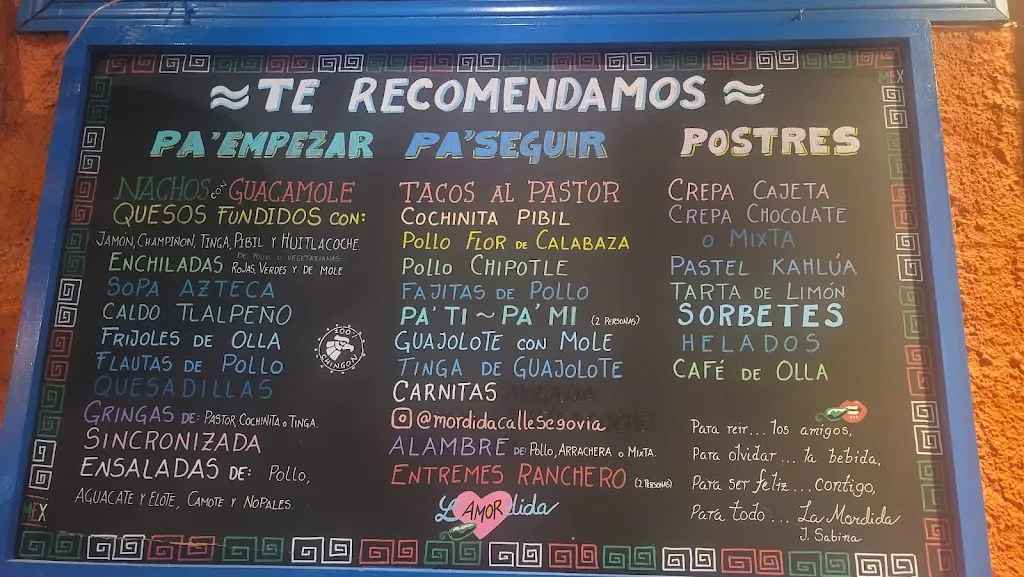 ≈ TE RECOMENDAMOS ≈
PA' EMPEZAR
NACHOS CON GUACAMOLE
QUESOS FUNDIDOS CON:
JAMON, CHAMPIÑON, TINGA, PIBIL Y HUITLACOCHE
DE POLLO O VEGETARIANAS
ENCHILADAS ROJAS, VERDES Y DE MOLE
SOPA AZTECA
CALDO TLALPEÑO
FRIJOLES DE OLLA
FLAUTAS DE POLLO
QUESADILLAS
GRINGAS DE: PASTOR, COCHINITA O TINGA.
SINCRONIZADA
ENSALADAS DE: POLLO,
AGUACATE Y ELOTE, CAMOTE Y NOPALES.
100%
CHINGON
PA' SEGUIR
TACOS AL PASTOR
COCHINITA PIBIL
POLLO FLOR DE CALABAZA
POLLO CHIPOTLE
FAJITAS DE POLLO
PA' TI ~ PA' MI (2 PERSONAS)
GUAJOLOTE CON MOLE
TINGA DE GUAJOLOTE
CARNITAS
@mordidacallesegovia
ALAMBRE DE: POLLO, ARRACHERA O MIXTA.
ENTREMES RANCHERO (2 PERSONAS)
La Mordida
AMOR
POSTRES
CREPA CAJETA
CREPA CHOCOLATE
O MIXTA
PASTEL KAHLÚA
TARTA DE LIMÓN
SORBETES
HELADOS
CAFÉ DE OLLA
Para reir... los amigos,
Para olvidar... la bebida,
Para ser feliz... contigo,
Para todo... La Mordida
J. Sabina
MEX
MEX